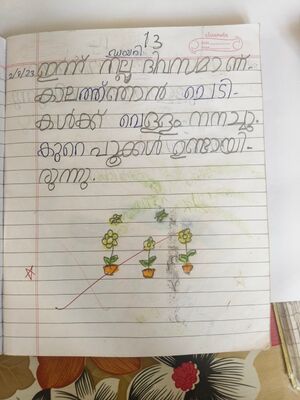 classmate
13
ഡയറി
2/9/23 ഇന്ന് നല്ല ദിവസമാണ്.
കാലത്ത്ഞാൻ ചെടി-
കൾക്ക് വെള്ളം നനച്ചു.
കുറെ പൂക്കൾ ഉണ്ടായി-
രുന്നു.